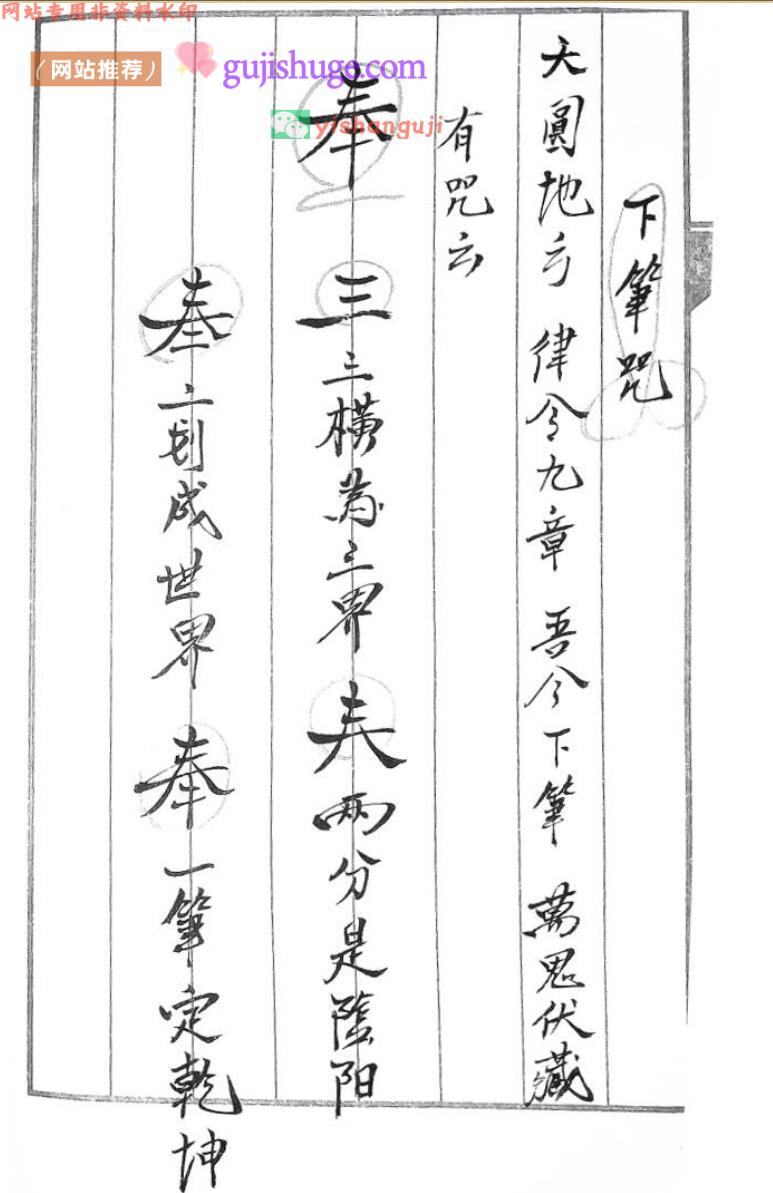 网站专用非资料水印
（网站推荐） gujishuge.com
yishanguji
下筆咒
天圓地方 律令九章 吾今下筆 萬鬼伏藏
有咒云
奉 三 三横為三界 𡗗 兩分是陰阳
二划成世界 奉 一筆定乾坤